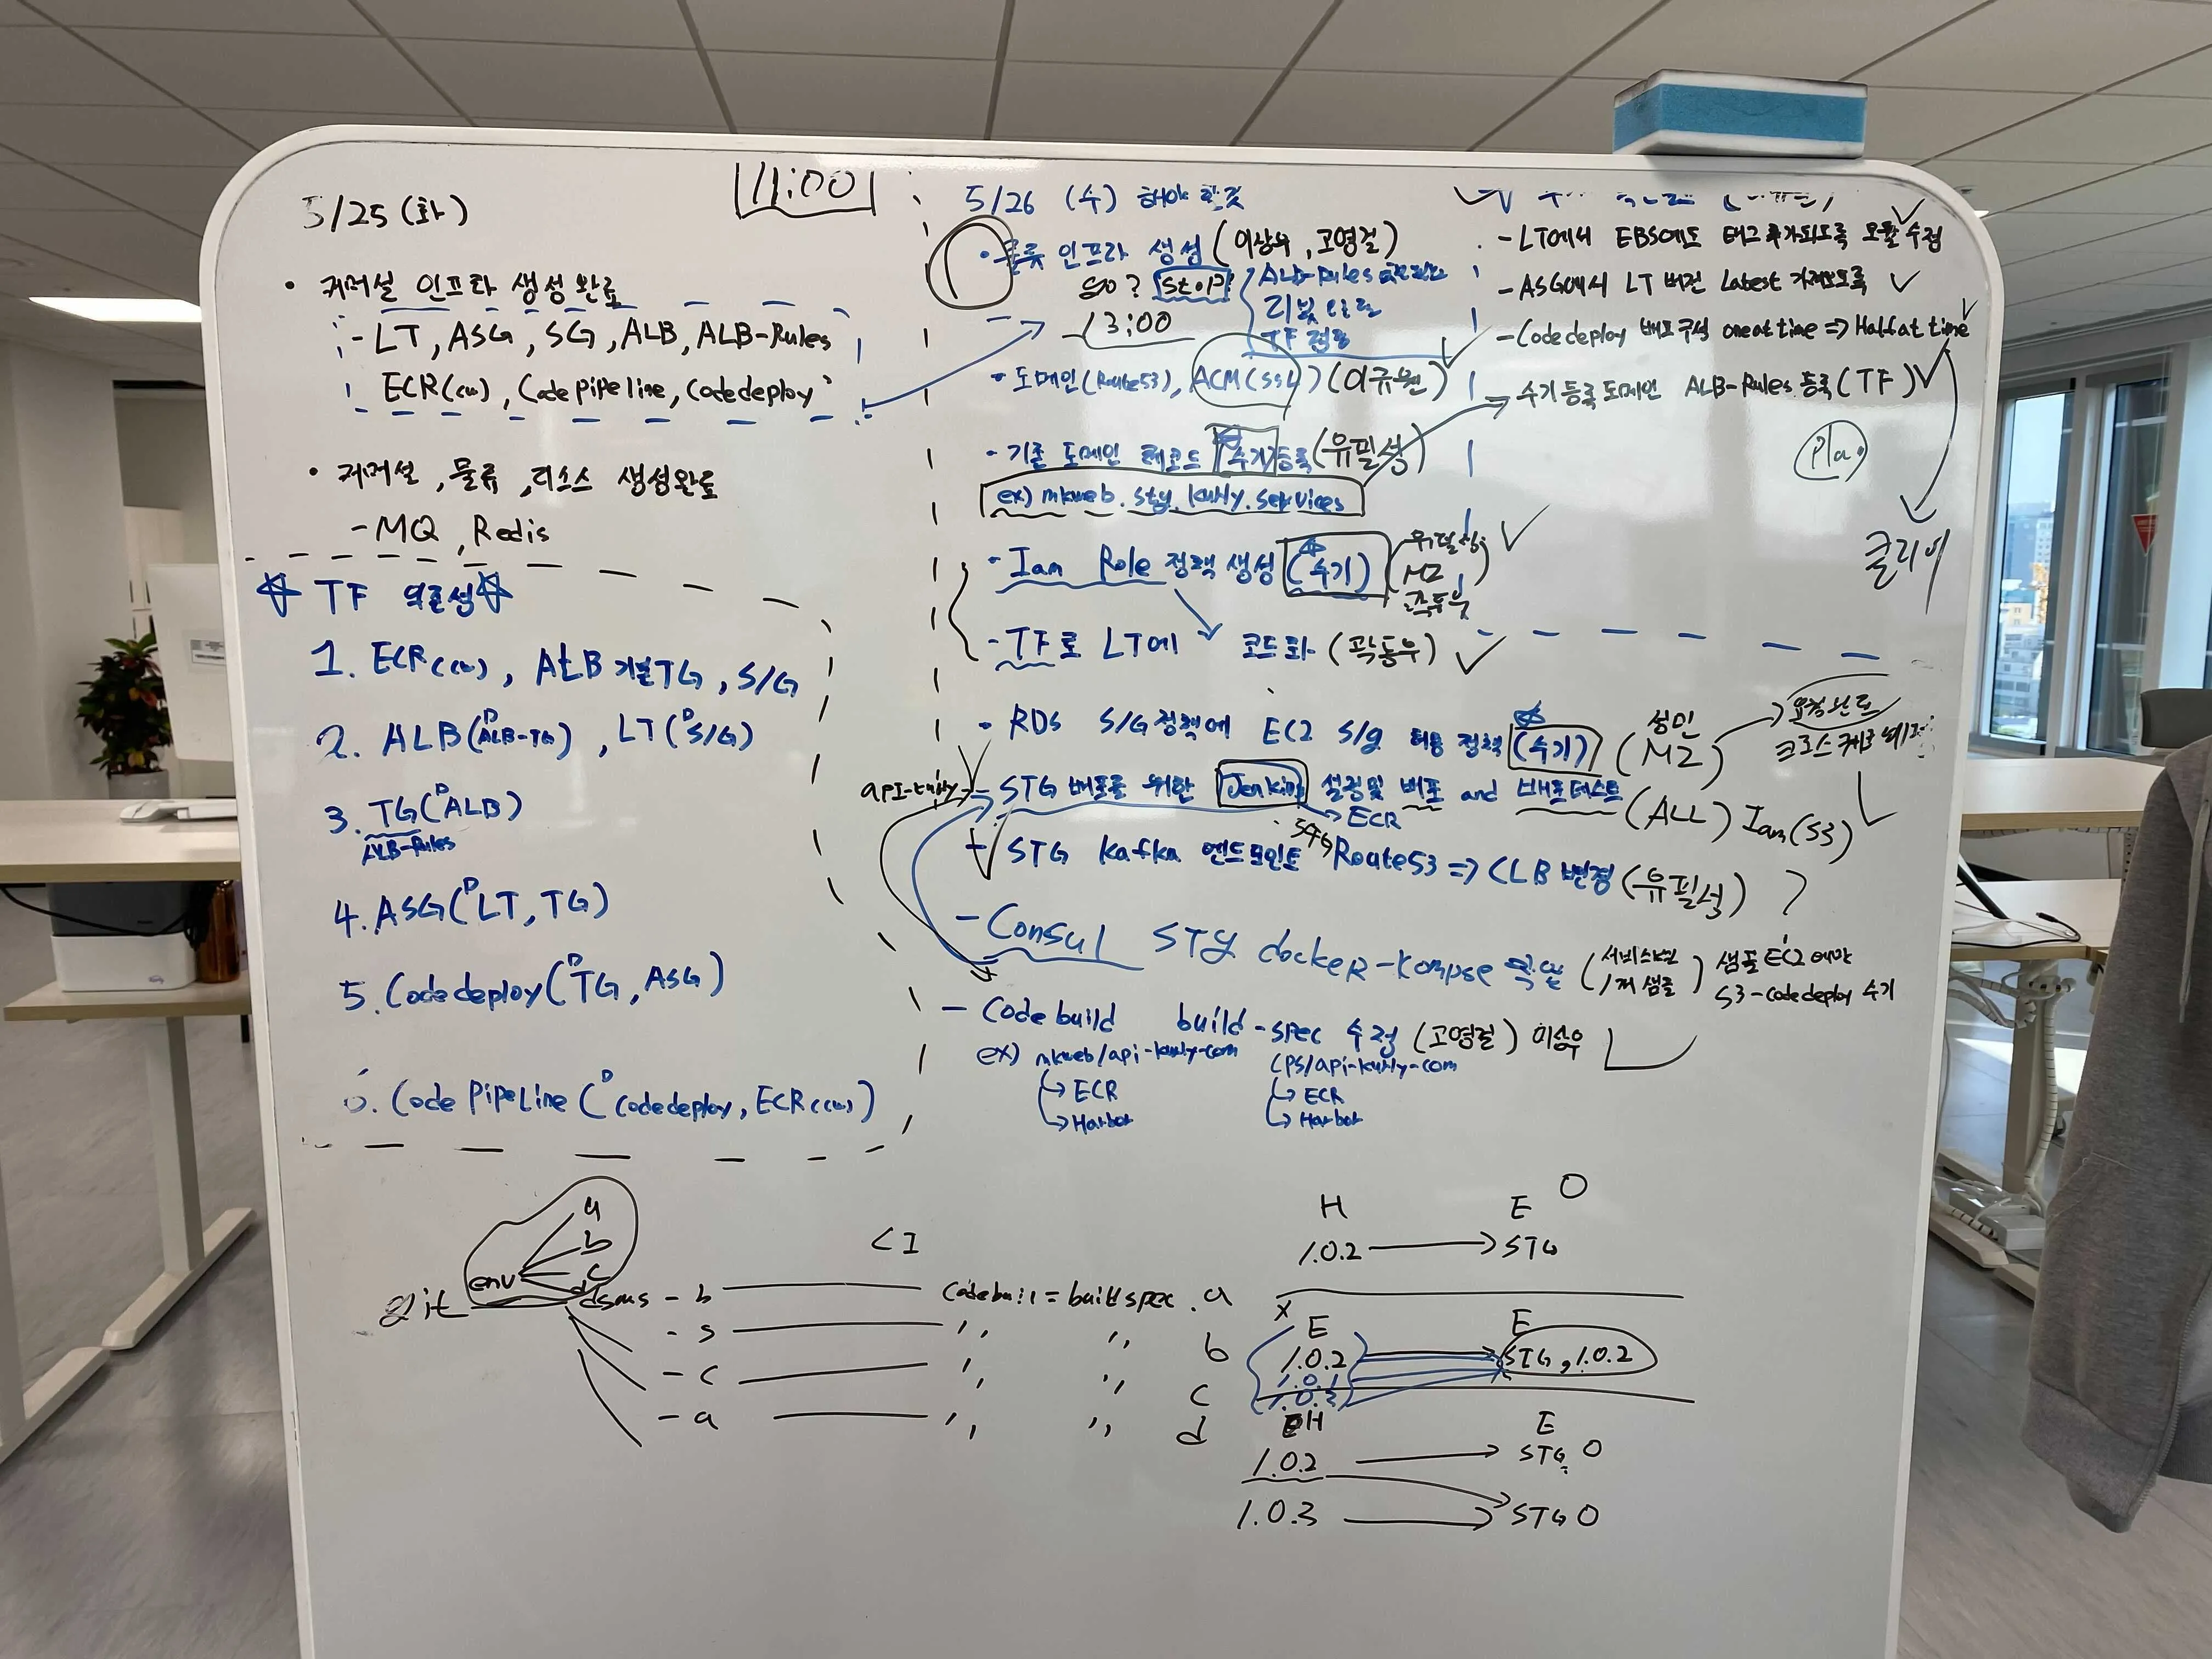 5/25 (화)
11:00
• 커머설 인프라 생성완료
- LT, ASG, SG, ALB, ALB-Rules
ECR(cw), Code pipeline, codedeploy
• 커머설, 물류, 리소스 생성완료
- MQ, Redis
☆ TF 의존성 ☆
1. ECR(cw), ALB 기본TG, S/G
2. ALB(ᴰALB-TG), LT(ᴰS/G)
3. TG(ᴰALB)
ALB-Rules
4. ASG(ᴰLT, TG)
5. Codedeploy(ᴰTG, ASG)
6. Code Pipeline (ᴰcodedeploy, ECR(cw))
5/26 (수) 해야 할것
• 물류 인프라 생성 (이상우, 고영걸)
go? stop
ALB-Rules
TF
13:00
• 도메인(Route53), ACM(SSL) (이규원)
- 기존 도메인 레코드 수기등록 (유필성)
ex) mkweb.stg.kurly.services
- Iam Role 정책 생성 (수기) (유필성, MZ, 곽동우)
- TF로 LT에 코드화 (곽동우)
- RDS S/G정책에 EC2 S/g 허용 정책 (수기) (성민 MZ)
요청완료
api-kurly
- STG 배포를 위한 Jenkins 설정및 배포 and 배포테스트 (ALL) Iam(S3)
ECR
- STG kafka 엔드포인트 STG Route53 => CLB 변경 (유필성)
- Consul STG dockeR-kompse (서비스별 1개 샘플) 샘플 EC2에만
S3-codedeploy 수기
- Codebuild build-spec 수정 (고영걸) 이상우
ex) mkweb/api-kurly-com CPS/api-kurly-com
→ ECR → ECR
→ Harbor → Harbor
- LT에서 EBS에도 태그 추가되도록 모듈 수정
- ASG에서 LT 버전 Latest 가져오도록
- Codedeploy 배포구성 oneattime => Halfattime
수기등록도메인 ALB-Rules 등록(TF)
Plan
클리어
a
b
c
d
env
git
CI
dsms - b codebuil = buildspec . a
- s 〃 〃 b
- c 〃 〃 c
- a 〃 〃 d
H E O
1.0.2 → STG
X
E E
1.0.2 STG, 1.0.2
1.0.1
1.0.3
H E
1.0.2 → STG O
1.0.3 → STG O